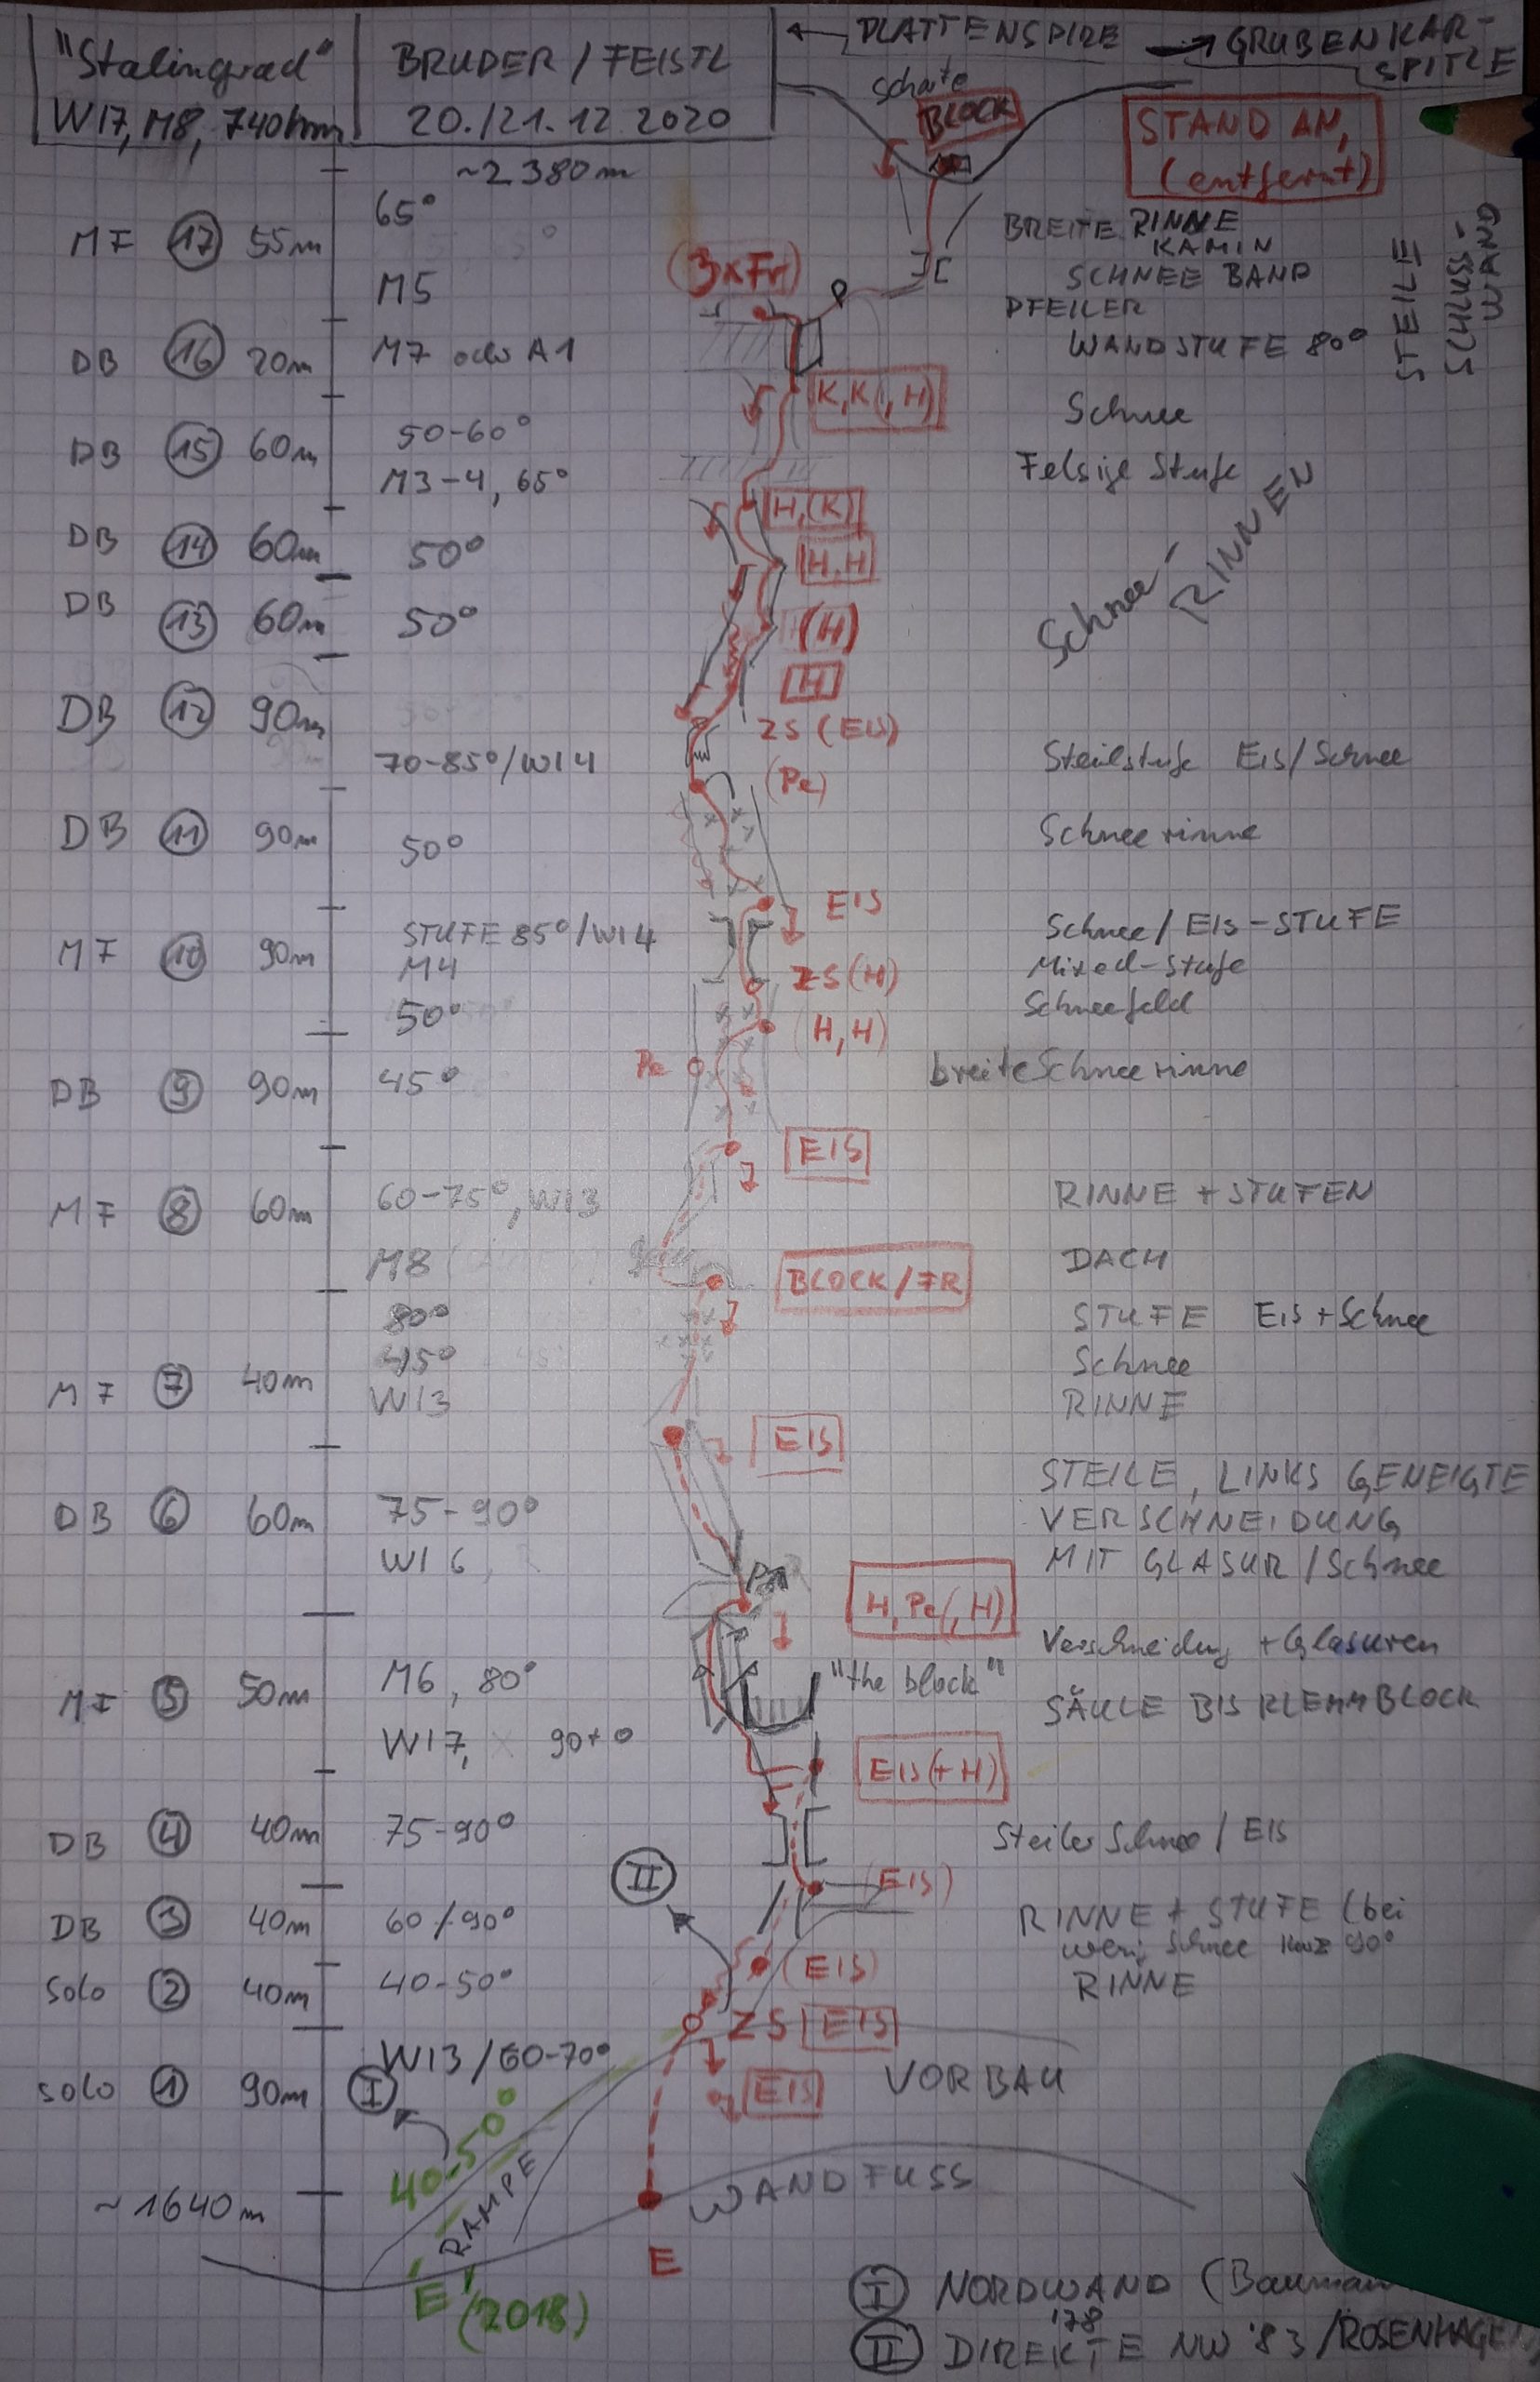 "Stalingrad"
WI7, M8, 740hm
BRUDER / FEISTL
20./21.12.2020
← PLATTENSPIRE → GRUBENKAR-
SPITZE
Scharte
BLOCK
STAND AN,
(entfernt)
~2380m
MF 17 55m
65°
M5
(3xFr)
BREITE RINNE
KAMIN
SCHNEE BAND
PFEILER
STEILE
SCHLUSS-
WAND
DB 16 20m
M7 oder A1
WANDSTUFE 80°
K,K(,H)
DB 15 60m
50-60°
M3-4, 65°
Schnee
Felsige Stufe
H,(K)
DB 14 60m
50°
H,H
DB 13 60m
50°
(H)
H
Schnee-
RINNEN
DB 12 90m
70-85°/WI4
ZS (EIS)
(Pe)
Steilstufe EIS/Schnee
DB 11 90m
50°
Schneerinne
EIS
MF 10 90m
STUFE 85°/WI4
M4
50°
ZS (H)
(H,H)
Schnee/EIS-STUFE
Mixed-Stufe
Schneefeld
DB 9 90m
45°
Pe
breite Schneerinne
EIS
MF 8 60m
60-75°, WI3
M8
RINNE + STUFEN
DACH
BLOCK/FR
MF 7 40m
80°
45°
WI3
STUFE EIS+Schnee
Schnee
RINNE
EIS
DB 6 60m
75-90°
WI6
STEILE, LINKS GENEIGTE
VERSCHNEIDUNG
MIT GLASUR/Schnee
H,Pe(,H)
MF 5 50m
M6, 80°
WI7, 90+°
"the block"
Verschneidung + Glasuren
SÄULE BIS KLEMMBLOCK
EIS(+H)
DB 4 40m
75-90°
Steiler Schnee/EIS
II
(EIS)
DB 3 40m
60/-90°
RINNE + STUFE (bei
wenig Schnee kurz 90°
(EIS)
SOLO 2 40m
40-50°
RINNE
ZS EIS
SOLO 1 90m
WI3/60-70°
I
EIS
VORBAU
40-50°
RAMPE
~1640m
WANDFUSS
E
E'
(2018)
I NORDWAND (Bauman
'78
II DIREKTE NW '83/ROSENHAGE